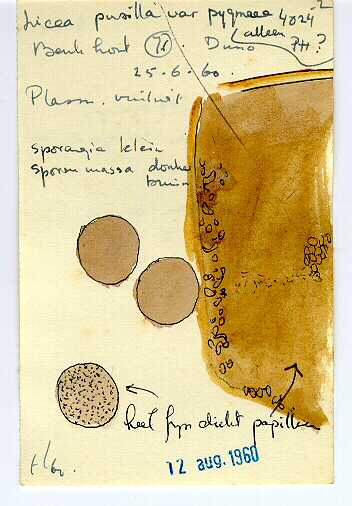 Licea pusilla var pygmaea 4024-2
Beuk hout 72 Dm (alleen PH?
25-6-60.
Plasm. vuilwit
sporangia klein
sporen massa donker
bruin
heel fijn dicht papilleus
t/60.
12 aug. 1960